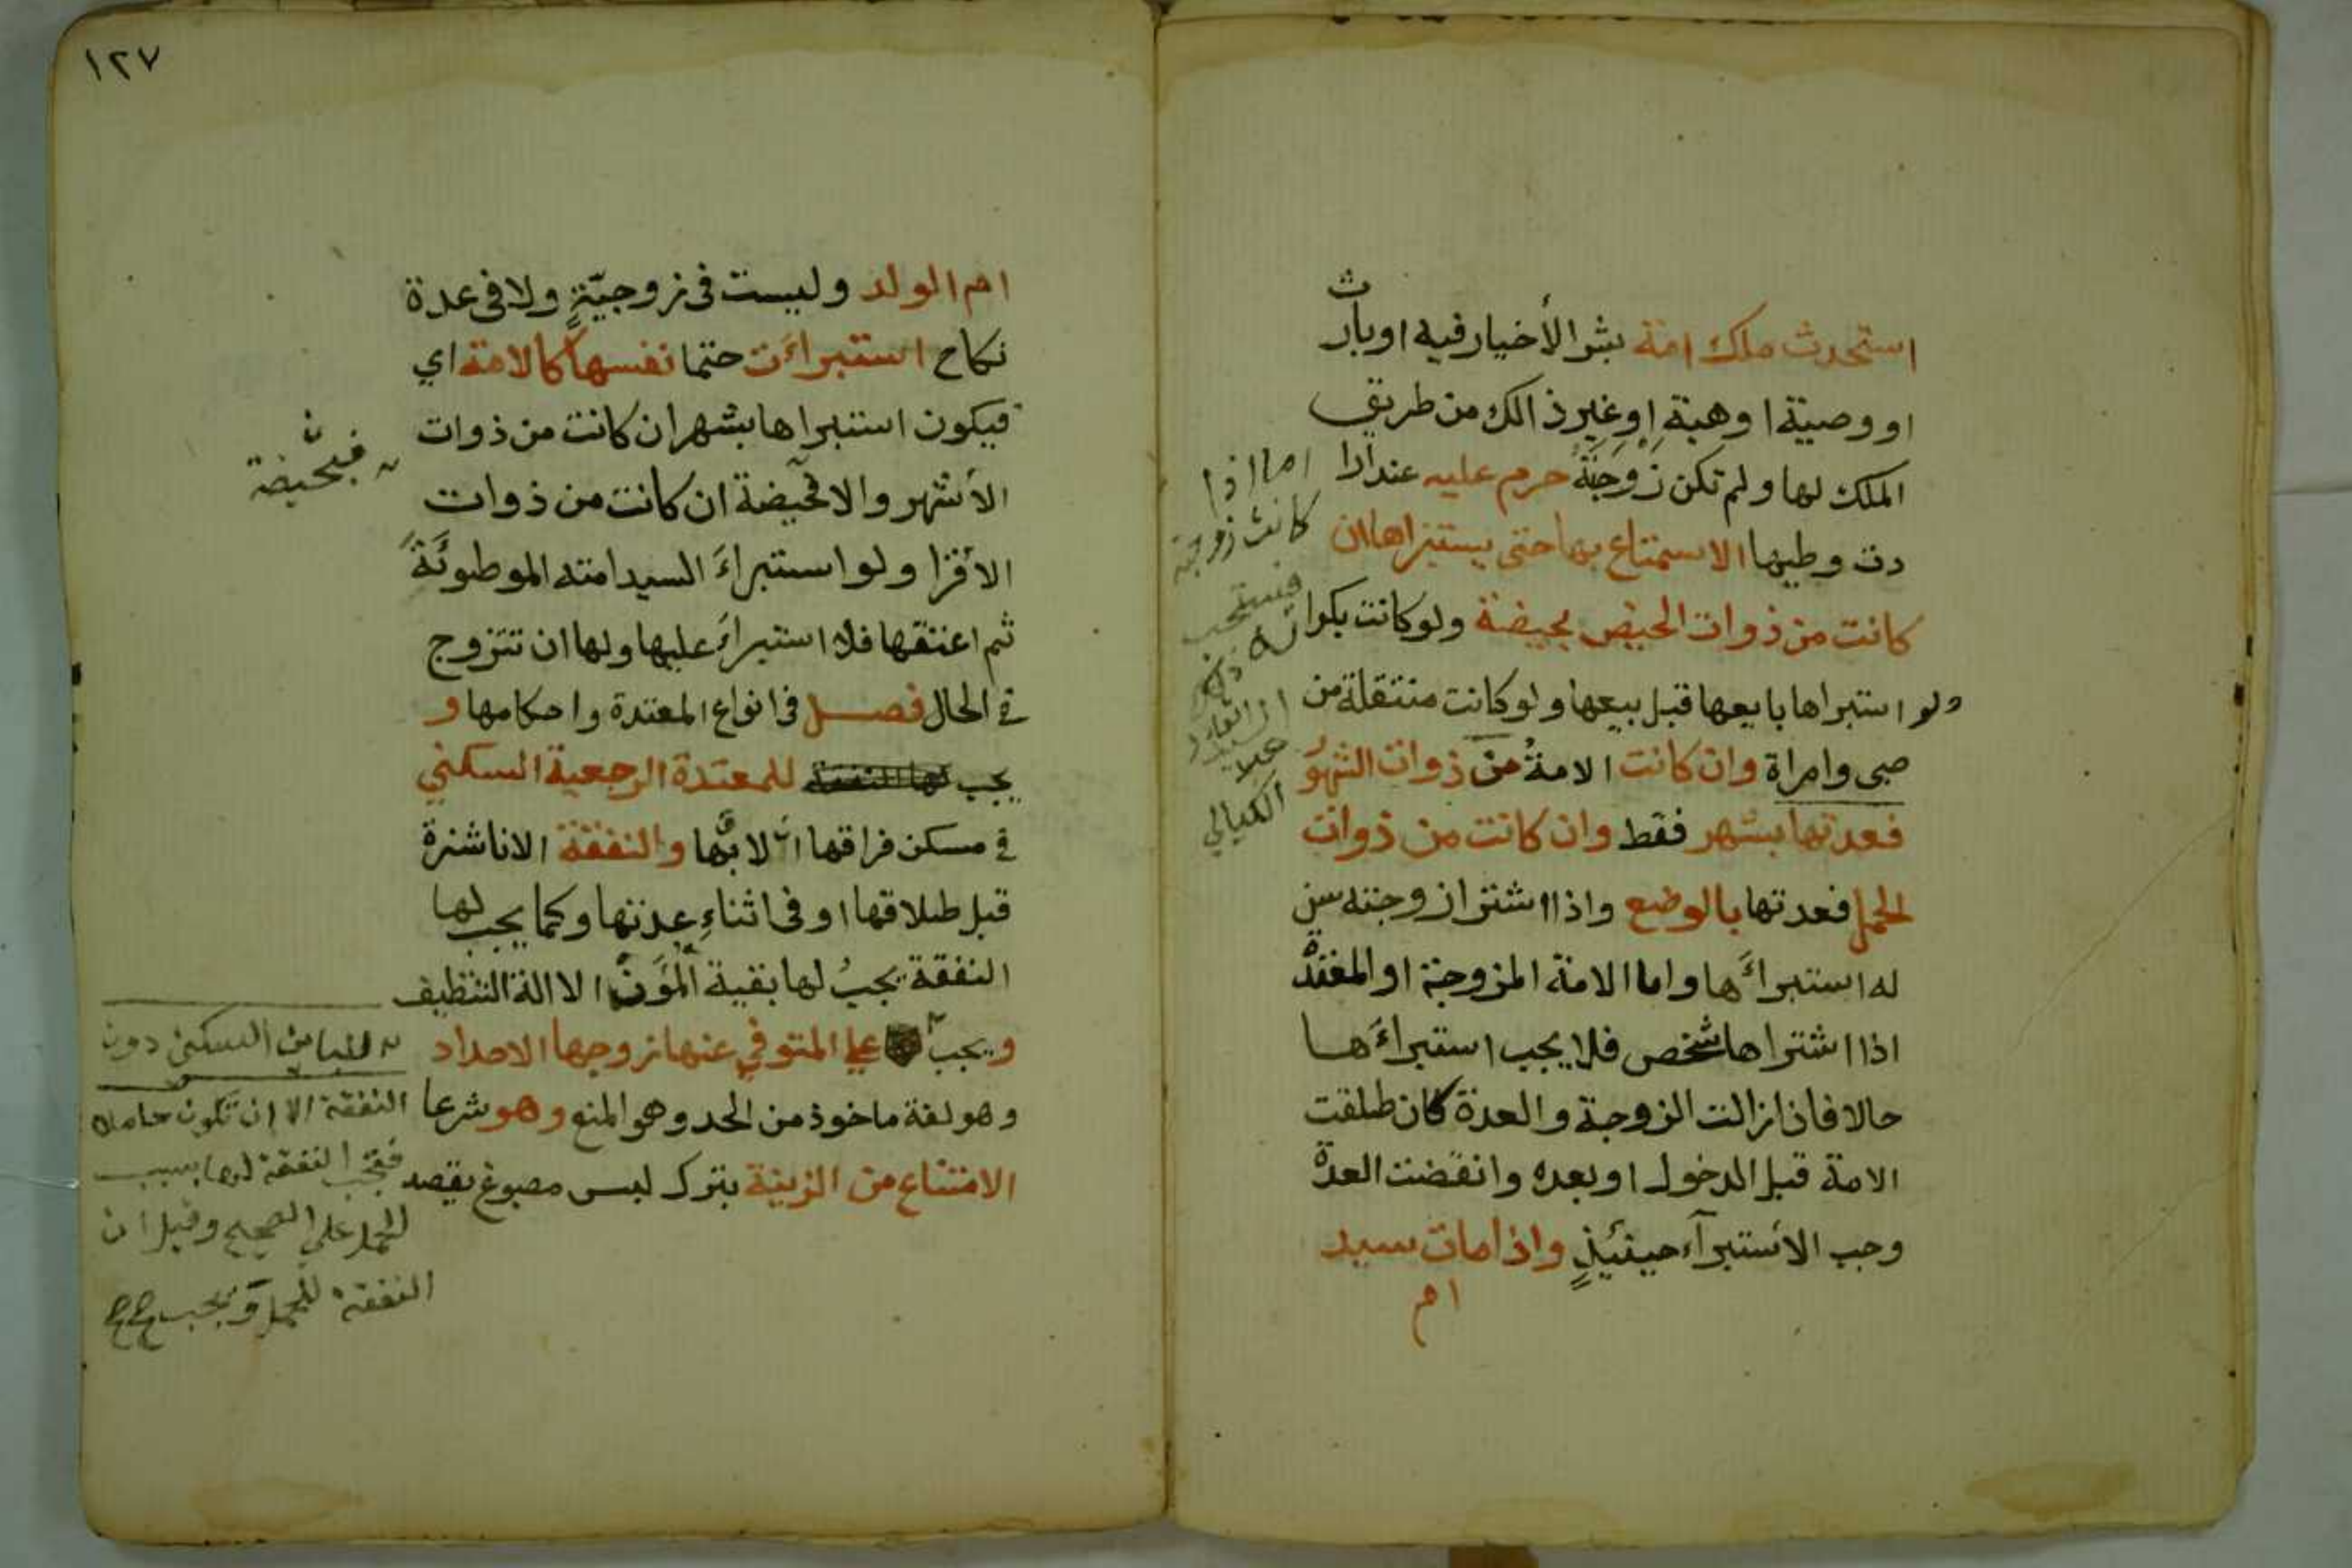 استحدث ملك امة بشرا لأخيار فيه او بارث
او وصية او هبة او غير ذالك من طريق
الملك لها ولم تكن زوجة حرم عليه عند ارا
دت وطيها الاستمتاع بها حتى يستبراها ان
كانت من ذوات الحيض بحيضة ولو كانت بكرا
ولو استبراها بايعها قبل بيعها ولو كانت منتقلة من
صبى وامراة وان كانت الامة من ذوات الشهور
فعدتها بشهر فقط وان كانت من ذوات
الحمل فعدتها بالوضع واذا اشترا زوجته سن
له استبراءها واما الامة المزوجة او المعتدة
اذا اشتراها شخص فلا يجب استبراءها
حالا فاذا زالت الزوجة والعدة كان طلقت
الامة قبل الدخول او بعده وانقضت العدة
وجب الأستبرآء حينئيذٍ واذا مات سيد
ام
اما اذا
كانت زوجة
فيستحب
الكيالي
١٢٧
ام الولد وليست فى زوجيّةٍ ولا فى عدة
نكاح استبراءت حتما نفسها كالامة اي
فيكون استبراها بشهر ان كانت من ذوات
الأشهر والا فحيضة ان كانت من ذوات
الأقرا ولو استبراءَ السيد امته الموطوئَةً
ثم اعتقها فلا استبراءَ عليها ولها ان تتزوج
في الحال فصل فى انواع المعتدة واحكامها و
يجب لها النفقة للمعتدة الرجعية السكني
في مسكن فراقها ان لاق بها والنفقة الا ناشزة
قبل طلاقها او فى اثناءِ عدتها وكما يجب لها
النفقة يجبُ لها بقية المؤَون الا الة التنظيف
ويجب على المتوفي عنها زوجها الاحداد
وهو لغة ماخوذ من الحد وهو المنع وهو شرعا
الامتناع من الزينة بترك لبس مصبوغ يقصد
فبحيضة
للبائن السكنى دون
النفقة الا ان تكون حاملا
فتجب النفقة لها بسبب
الحمل على الصحيح وقيل ان
النفقة للحمل ويجب صح